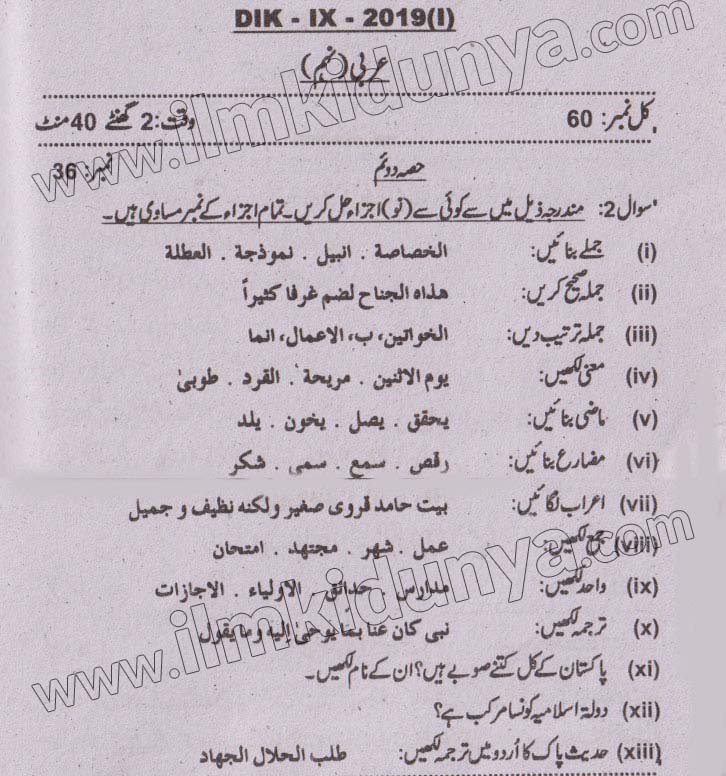 DIK - IX - 2019(I)
عربی (نہم)
کل نمبر: 60 وقت: 2 گھنٹے 40 منٹ
حصہ دوئم نمبر: 36
سوال 2: مندرجہ ذیل میں سے کوئی سے (نو) اجزاء حل کریں۔ تمام اجزاء کے نمبر مساوی ہیں۔
(i) جملے بنائیں: الخصاصة . انبیل . نموذجة . العطلة
(ii) جملہ صحیح کریں: هذاه الجناح لضم غرفا کثیراً
(iii) جملہ ترتیب دیں: الخواتین، ب، الاعمال، انما
(iv) معنی لکھیں: یوم الاثنین . مریحة . القرد . طوبیٰ
(v) ماضی بنائیں: یحقق . یصل . یخون . یلد
(vi) مضارع بنائیں: رقص . سمع . سمی . شکر
(vii) اعراب لگائیں: بیت حامد قروی صغیر ولکنه نظیف و جمیل
(viii) جمع لکھیں: عمل . شهر . مجتهد . امتحان
(ix) واحد لکھیں: مدارس . حدائق . الاولیاء . الاجازات
(x) ترجمہ لکھیں: نبی کان عنا بما یوحیٰ إلیه وما یقول
(xi) پاکستان کے کل کتنے صوبے ہیں؟ ان کے نام لکھیں۔
(xii) دولة اسلامیه کونسا مرکب ہے؟
(xiii) حدیث پاک کا اُردو میں ترجمہ لکھیں: طلب الحلال الجهاد
www.ilmkidunya.com
www.ilmkidunya.com